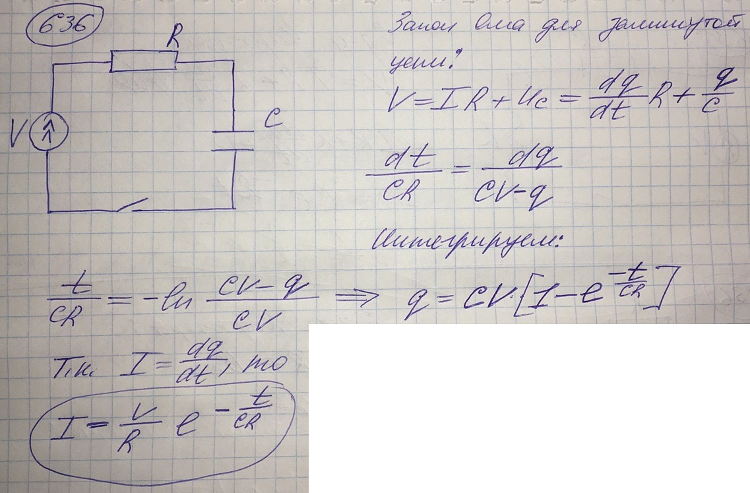 636
R
V
C
Закон Ома для замкнутой
цепи:
V = IR + Uc = dq/dt R + q/C
dt/CR = dq/(CV-q)
Интегрируем:
t/CR = -ln (CV-q)/CV => q = CV·[1 - e^(-t/CR)]
Т.к. I = dq/dt, то
I = V/R e^(-t/CR)